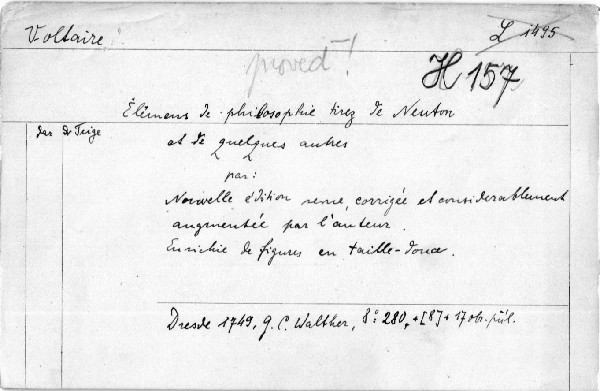 Voltaire
L 1495
proved!
H 157
Élémens de philosophie tirez de Neuton
dar Dr Teige
et de quelques autres
par:
Nouvelle édition revue, corrigée et considerablement
augmentée par l'auteur.
Enrichie de figures en taille-douce.
Dresde 1749, G. C. Walther, 8° 280, + [8] + 17 obr. příl.